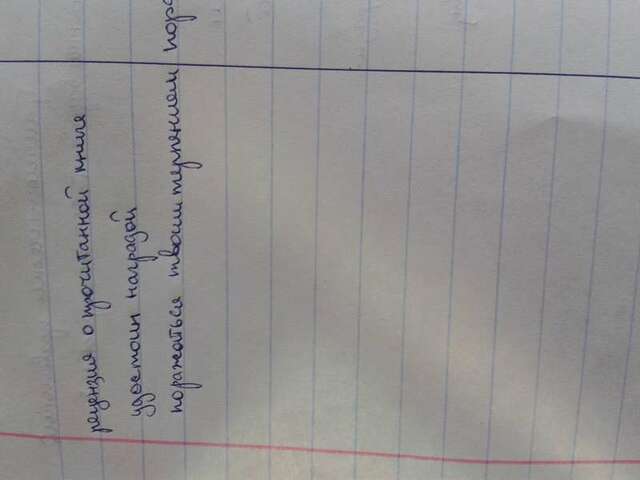 рецензия о прочитанной книге
удостоин наградой
поражаться твоим терпением пора